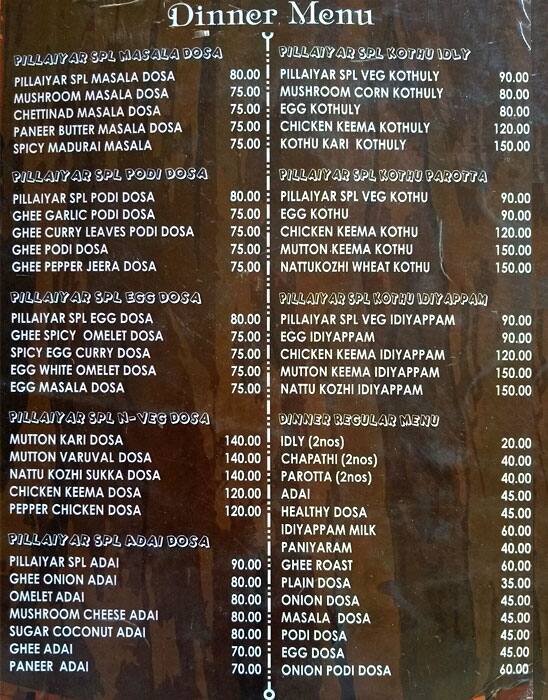 Dinner Menu
PILLAIYAR SPL MASALA DOSA
PILLAIYAR SPL MASALA DOSA 80.00
MUSHROOM MASALA DOSA 75.00
CHETTINAD MASALA DOSA 75.00
PANEER BUTTER MASALA DOSA 75.00
SPICY MADURAI MASALA 75.00
PILLAIYAR SPL PODI DOSA
PILLAIYAR SPL PODI DOSA 80.00
GHEE GARLIC PODI DOSA 75.00
GHEE CURRY LEAVES PODI DOSA 75.00
GHEE PODI DOSA 75.00
GHEE PEPPER JEERA DOSA 75.00
PILLAIYAR SPL EGG DOSA
PILLAIYAR SPL EGG DOSA 80.00
GHEE SPICY OMELET DOSA 75.00
SPICY EGG CURRY DOSA 75.00
EGG WHITE OMELET DOSA 75.00
EGG MASALA DOSA 75.00
PILLAIYAR SPL N-VEG DOSA
MUTTON KARI DOSA 140.00
MUTTON VARUVAL DOSA 140.00
NATTU KOZHI SUKKA DOSA 140.00
CHICKEN KEEMA DOSA 120.00
PEPPER CHICKEN DOSA 120.00
PILLAIYAR SPL ADAI DOSA
PILLAIYAR SPL ADAI 90.00
GHEE ONION ADAI 80.00
OMELET ADAI 80.00
MUSHROOM CHEESE ADAI 80.00
SUGAR COCONUT ADAI 80.00
GHEE ADAI 70.00
PANEER ADAI 70.00
PILLAIYAR SPL KOTHU IDLY
PILLAIYAR SPL VEG KOTHULY 90.00
MUSHROOM CORN KOTHULY 80.00
EGG KOTHULY 80.00
CHICKEN KEEMA KOTHULY 120.00
KOTHU KARI KOTHULY 150.00
PILLAIYAR SPL KOTHU PAROTTA
PILLAIYAR SPL VEG KOTHU 90.00
EGG KOTHU 90.00
CHICKEN KEEMA KOTHU 120.00
MUTTON KEEMA KOTHU 150.00
NATTUKOZHI WHEAT KOTHU 150.00
PILLAIYAR SPL KOTHU IDIYAPPAM
PILLAIYAR SPL VEG IDIYAPPAM 90.00
EGG IDIYAPPAM 90.00
CHICKEN KEEMA IDIYAPPAM 120.00
MUTTON KEEMA IDIYAPPAM 150.00
NATTU KOZHI IDIYAPPAM 150.00
DINNER REGULAR MENU
IDLY (2nos) 20.00
CHAPATHI (2nos) 40.00
PAROTTA (2nos) 40.00
ADAI 45.00
HEALTHY DOSA 45.00
IDIYAPPAM MILK 60.00
PANIYARAM 40.00
GHEE ROAST 60.00
PLAIN DOSA 35.00
ONION DOSA 45.00
MASALA DOSA 45.00
PODI DOSA 45.00
EGG DOSA 45.00
ONION PODI DOSA 60.00